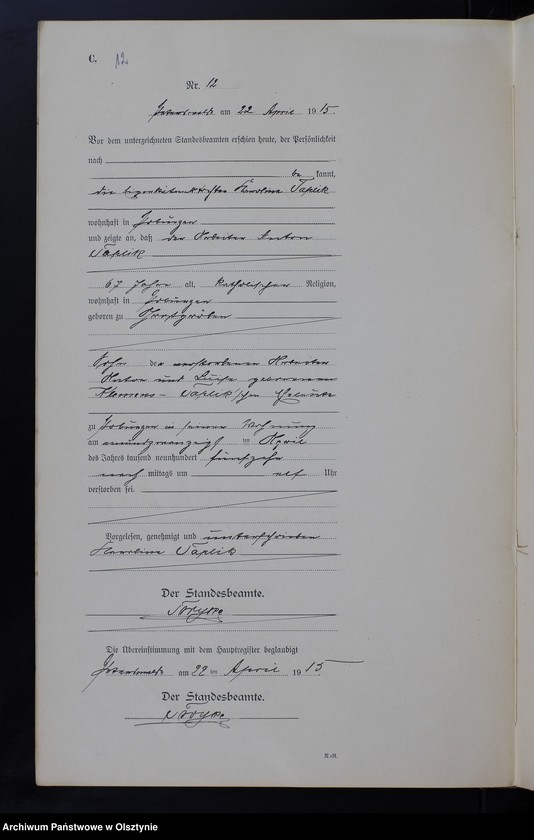 C. 12.
Nr. 12
am 22 April 1915.
Vor dem unterzeichneten Standesbeamten erschien heute, der Persönlichkeit
nach
be kannt,
die Karoline Taplik
wohnhaft in
und zeigte an, daß der Arbeiter Anton
Taplik
67 Jahre alt, katholischer Religion,
wohnhaft in
geboren zu
Sohn des verstorbenen Arbeiter
Anton und Luise geborenen
Taplik'schen Eheleute
zu in seiner Wohnung
am einundzwanzigsten April
des Jahres tausend neunhundert fünfzehn
nach mittags um elf Uhr
verstorben sei.
Vorgelesen, genehmigt und unterschrieben
Karoline Taplik
Der Standesbeamte.
Die Übereinstimmung mit dem Hauptregister beglaubigt
am 22 ten April 1915
Der Standesbeamte.
Archiwum Państwowe w Olsztynie